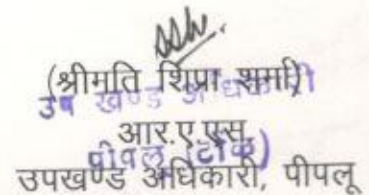 (श्रीमति शिप्रा शर्मा)
उप खण्ड अधिकारी
आर.ए.एस.
पीपलू (टोंक)
उपखण्ड अधिकारी, पीपलू